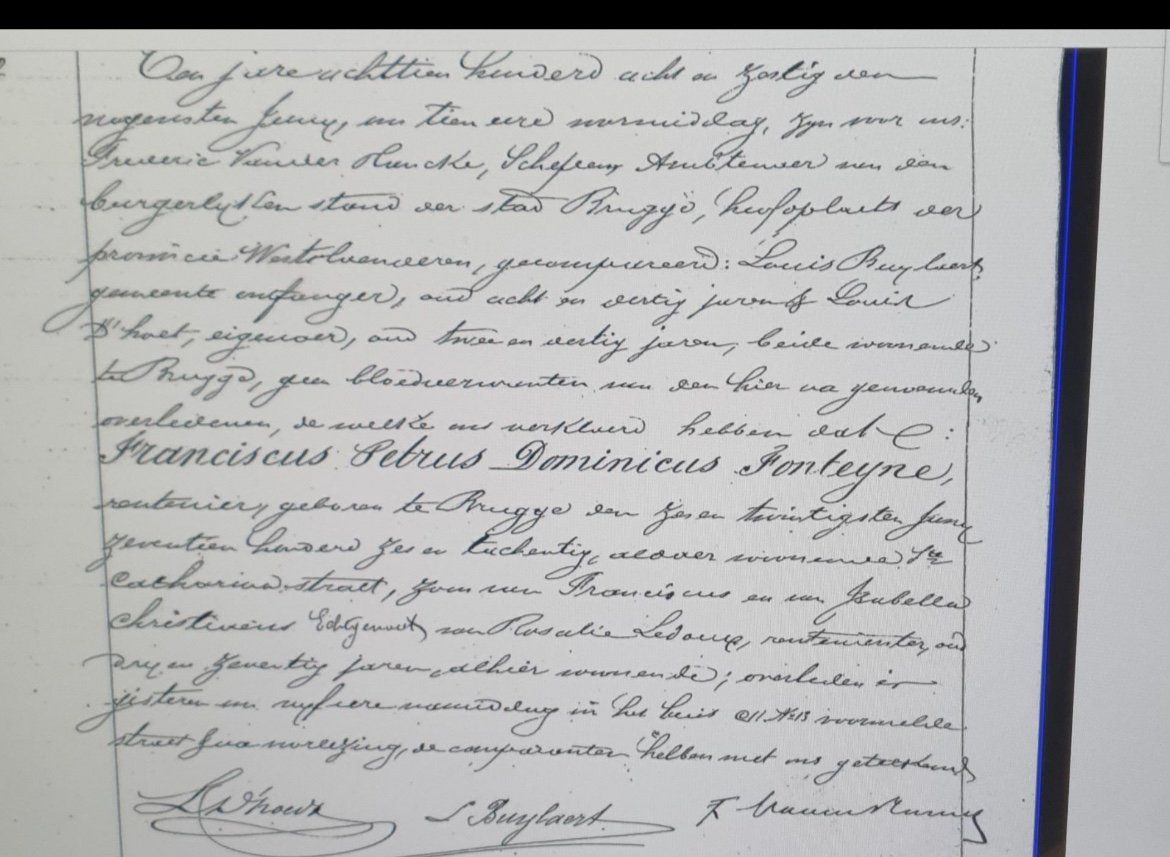 Ten jare achttien honderd acht en zestig den
negensten Juny, om tien ure voormiddag, zyn voor ons:
Frederic Vander Haecke, Schepen, Ambtenaer van den
burgerlyken stand der stad Brugge, hoofdplaets der
provincie Westvlaenderen, gecompareerd: Louis Buylaert,
gemeente ontfanger, oud acht en dertig jaren & Louis
D'hoet, eigenaer, oud twee en dertig jaren, beide woonende
te Brugge, geen bloedverwanten van den hier na genoemden
overledenen, de welke ons verklaerd hebben dat:
Franciscus Petrus Dominicus Fonteyne,
rentenier, geboren te Brugge den zes en twintigsten Juny
zeventien honderd zes en tachentig, aldaer woonende Ste
Catharina straet, zoon van Franciscus en van Isabella
Christiaens Echtgenoot van Rosalie Ledoux, rentenierster, oud
dry en zeventig jaren, alhier woonende; overleden is
gisteren om vyf ure namiddag in het huis No 13 voormelde
straet & na voorlezing, de comparanten hebben met ons geteekend
L D'hoet L Buylaert F